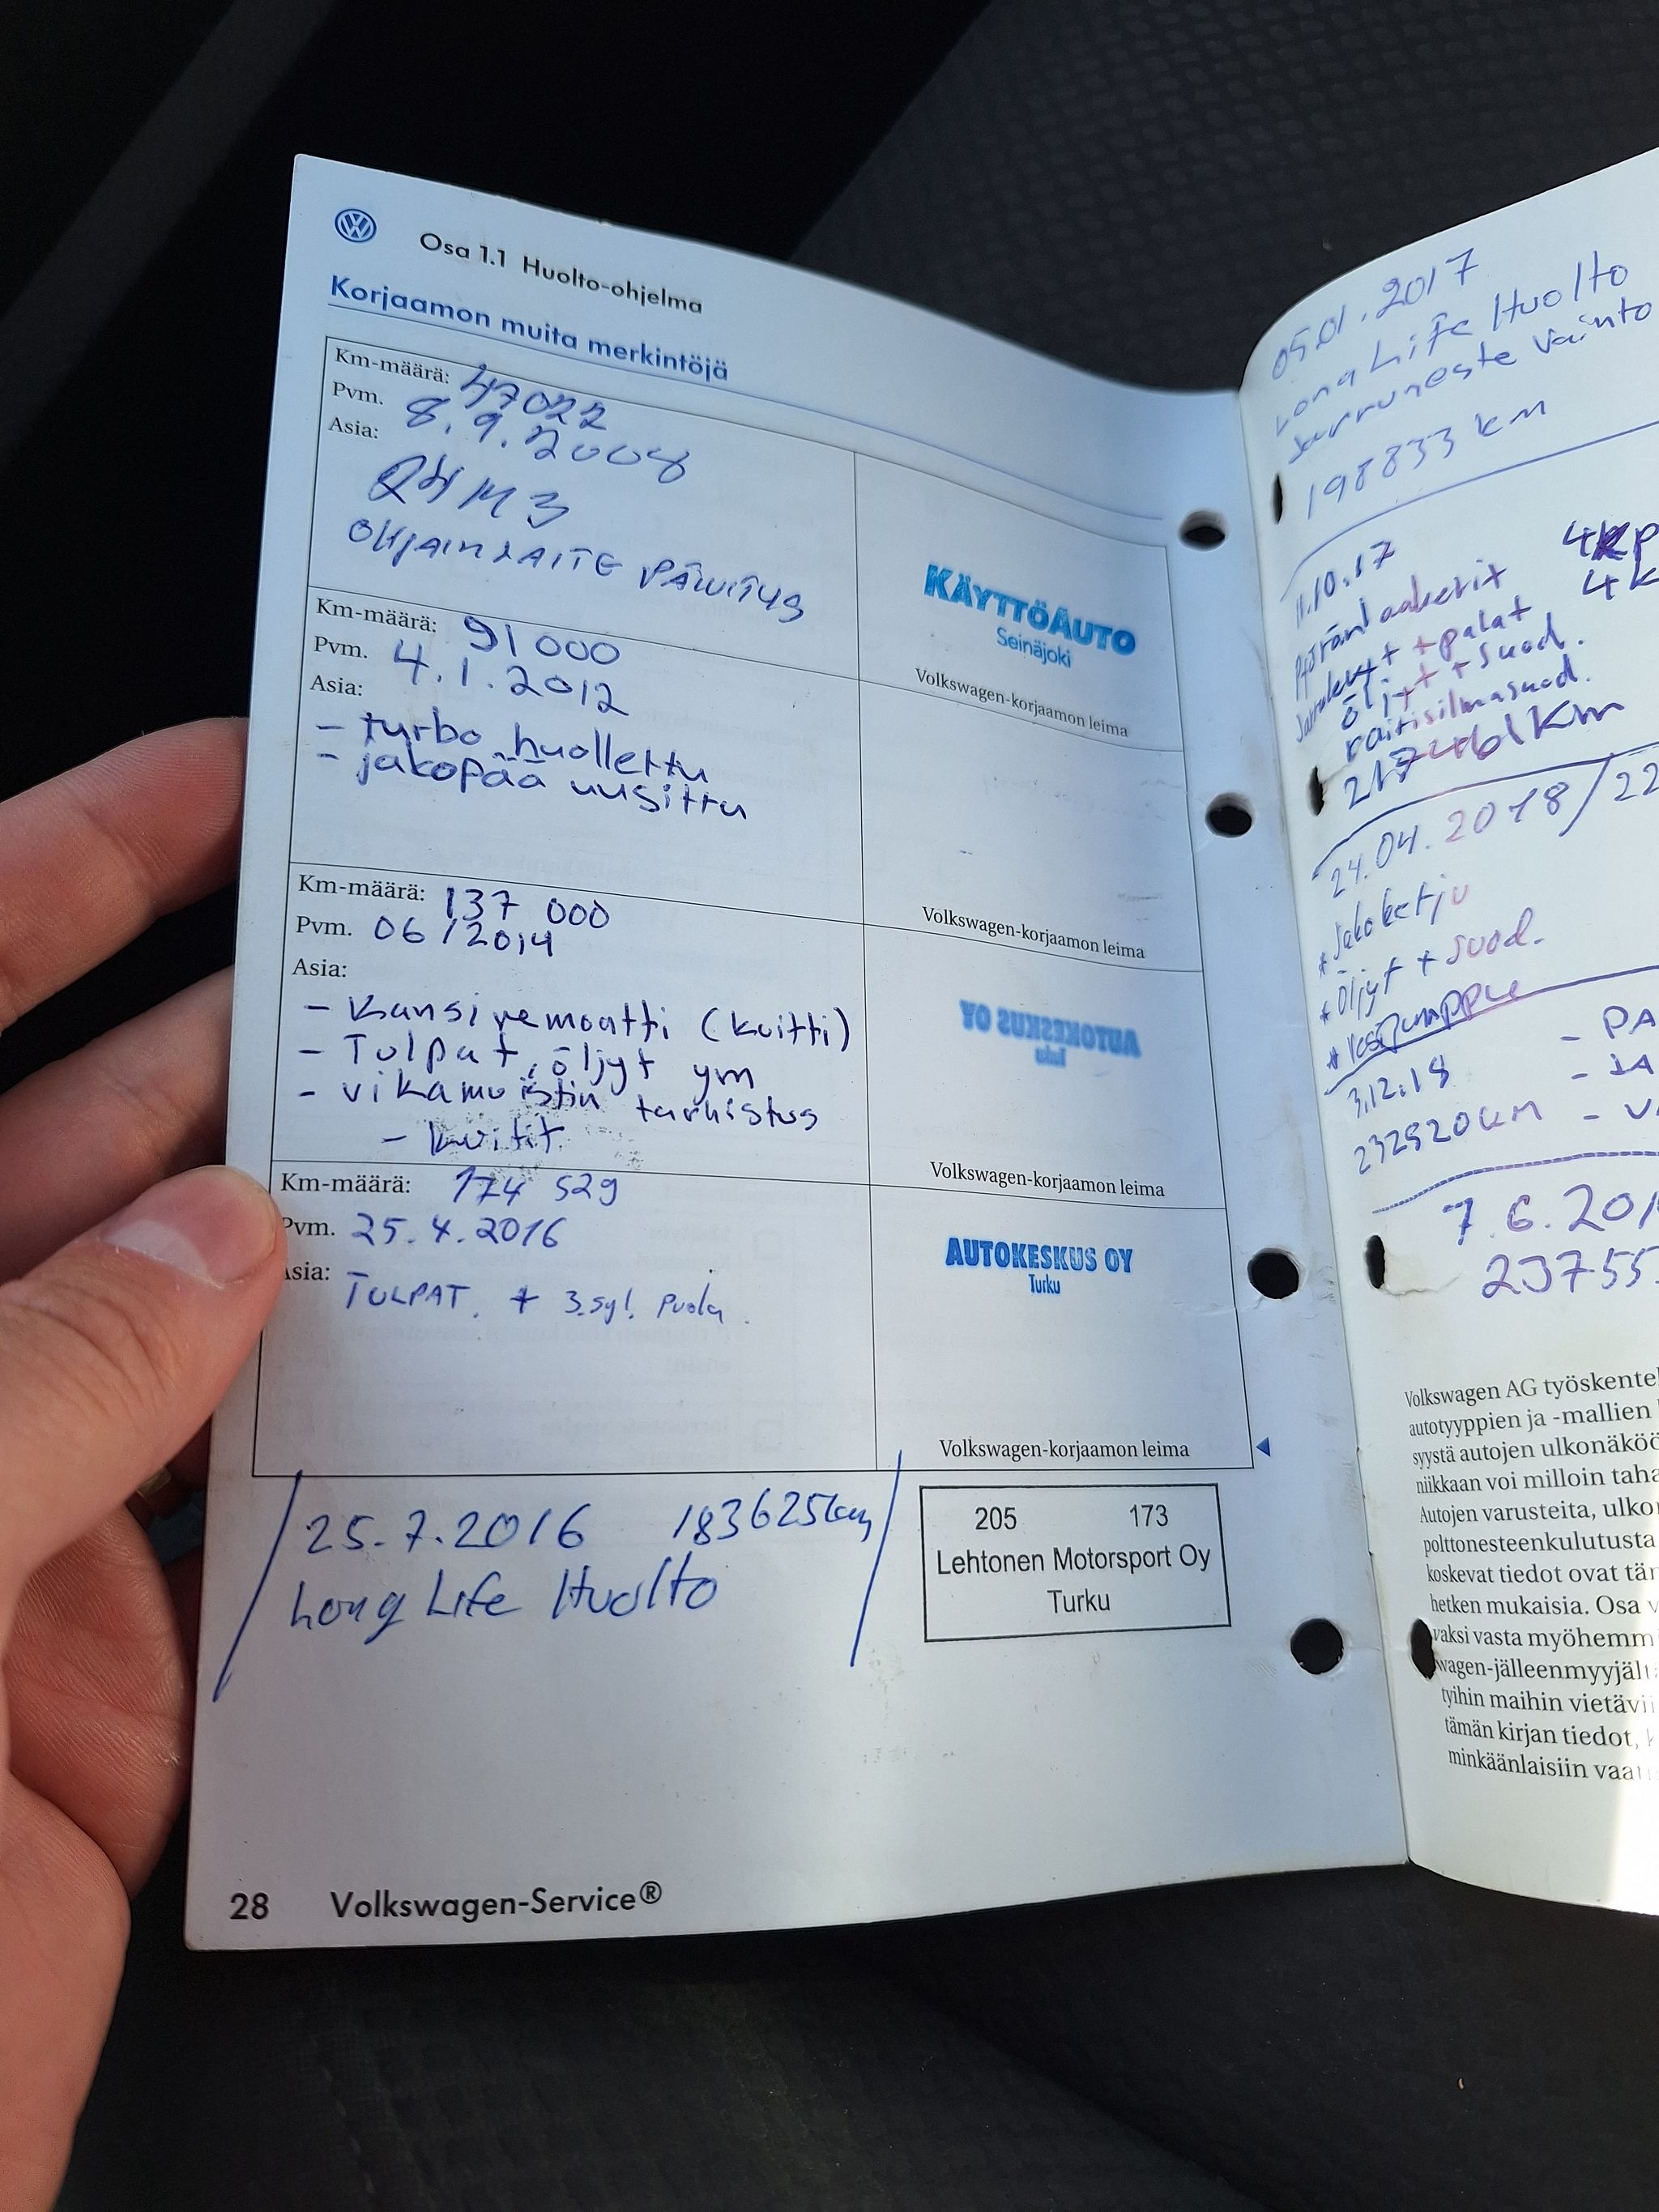 Osa 1.1 Huolto-ohjelma
Korjaamon muita merkintöjä
Km-määrä: 47022
Pvm. 8.9.2008
Asia:
OHJAINLAITE PÄIVITYS
KÄYTTÖAUTO
Seinäjoki
Volkswagen-korjaamon leima
Km-määrä: 91 000
Pvm. 4.1.2012
Asia:
- turbo huollettu
- jakopää uusittu
Volkswagen-korjaamon leima
Km-määrä: 137 000
Pvm. 06/2014
Asia:
- Kansiremontti (kuitti)
- Tulpat, öljyt ym
- vikamuistin tarkistus
- kuitit
AUTOKESKUS OY
Turku
Volkswagen-korjaamon leima
Km-määrä: 174 529
Pvm. 25.4.2016
Asia:
TULPAT. + 3.syl. puola.
AUTOKESKUS OY
Turku
Volkswagen-korjaamon leima
25.7.2016 183625km
Long Life Huolto
205 173
Lehtonen Motorsport Oy
Turku
28 Volkswagen-Service®
05.01.2017
Long Life Huolto
Jarruneste vaihto
198833 km
11.10.17
+ palat
öljyt + suod.
raitisilmasuod.
217461 km
24.04.2018/22
* Jakoketju
* Öljyt + suod.
* Vesipumppu
3.12.18
232920km
- PA
- JA
- V
7.6.201
23755
Volkswagen AG työskentel
autotyyppien ja -mallien
syystä autojen ulkonäköö
niikkaan voi milloin taha
Autojen varusteita, ulko
polttonesteenkulutusta
koskevat tiedot ovat tä
hetken mukaisia. Osa v
vaksi vasta myöhemm
wagen-jälleenmyyjält
tyihin maihin vietävi
tämän kirjan tiedot,
minkäänlaisiin vaat